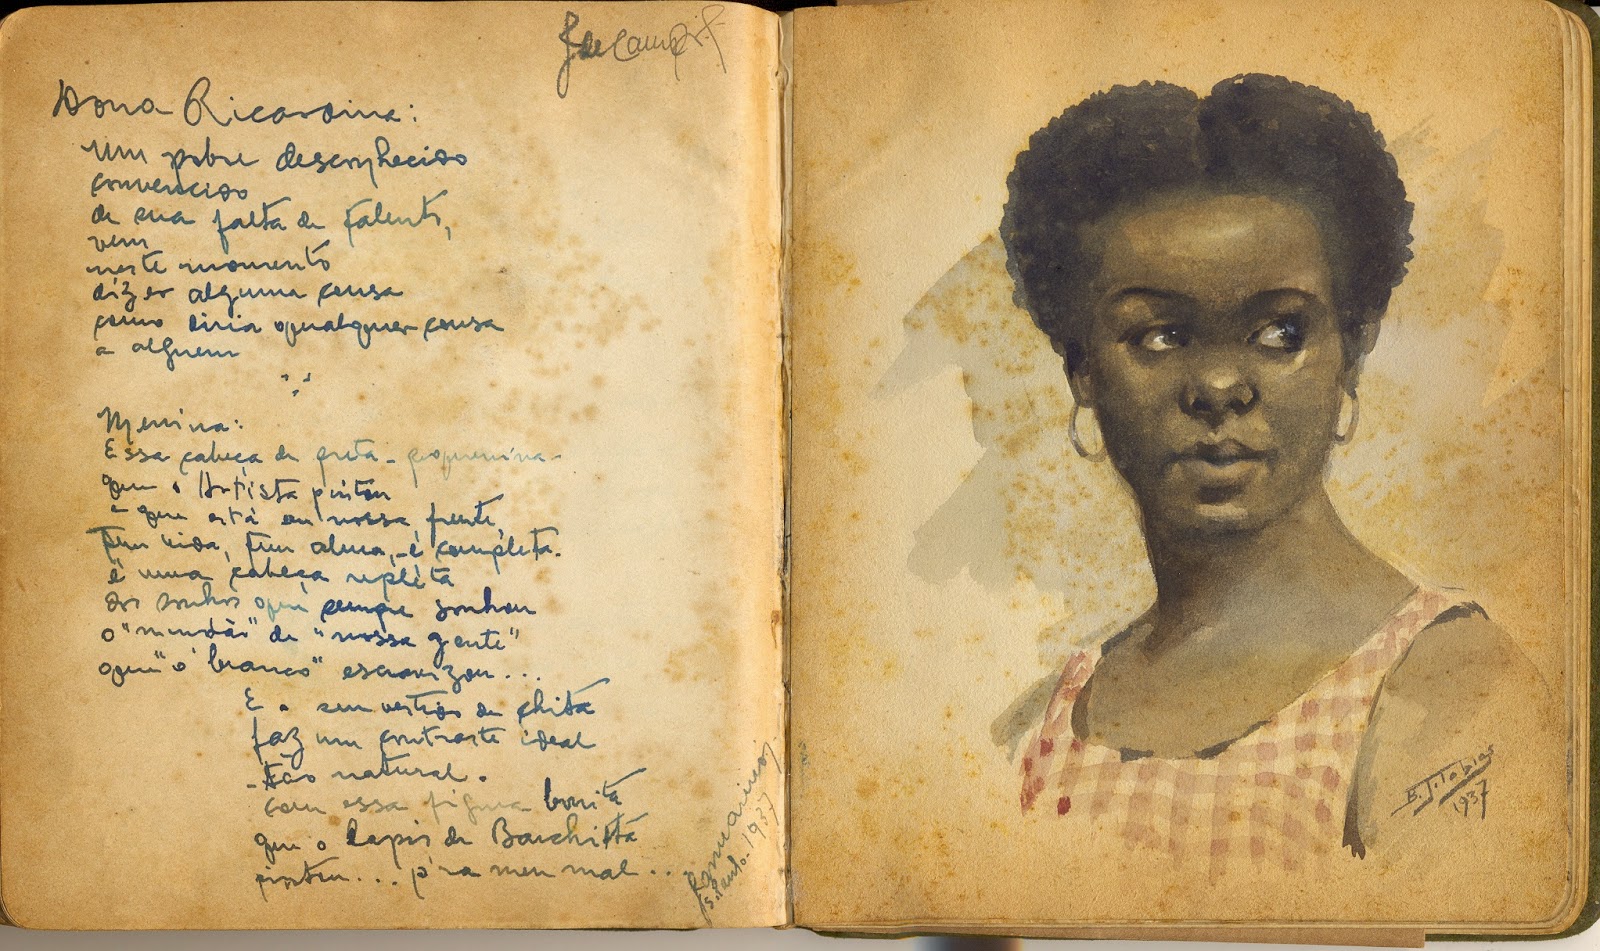 Dona Ricardina:
um pobre desconhecido
convencido
de sua falta de talento,
vem
neste momento
dizer alguma cousa
como diria qualquer cousa
a alguem
Menina:
Essa cabeça de preta - pequenina -
que o Artista pintou
e que está en nossa frente,
tem vida, tem alma, - é completa.
é uma cabeça repléta
dos sonhos que sempre sonhou
o "mundão" de "nossa gente"
que "o branco" escravizou...
E o seu vestido de chita
faz um contraste ideal
- tão natural.
com essa figura bonita
que o lapis de Baichistá
pintou... p'ra meu mal...
S. Paulo. 1937
B. J. Tobias
1937